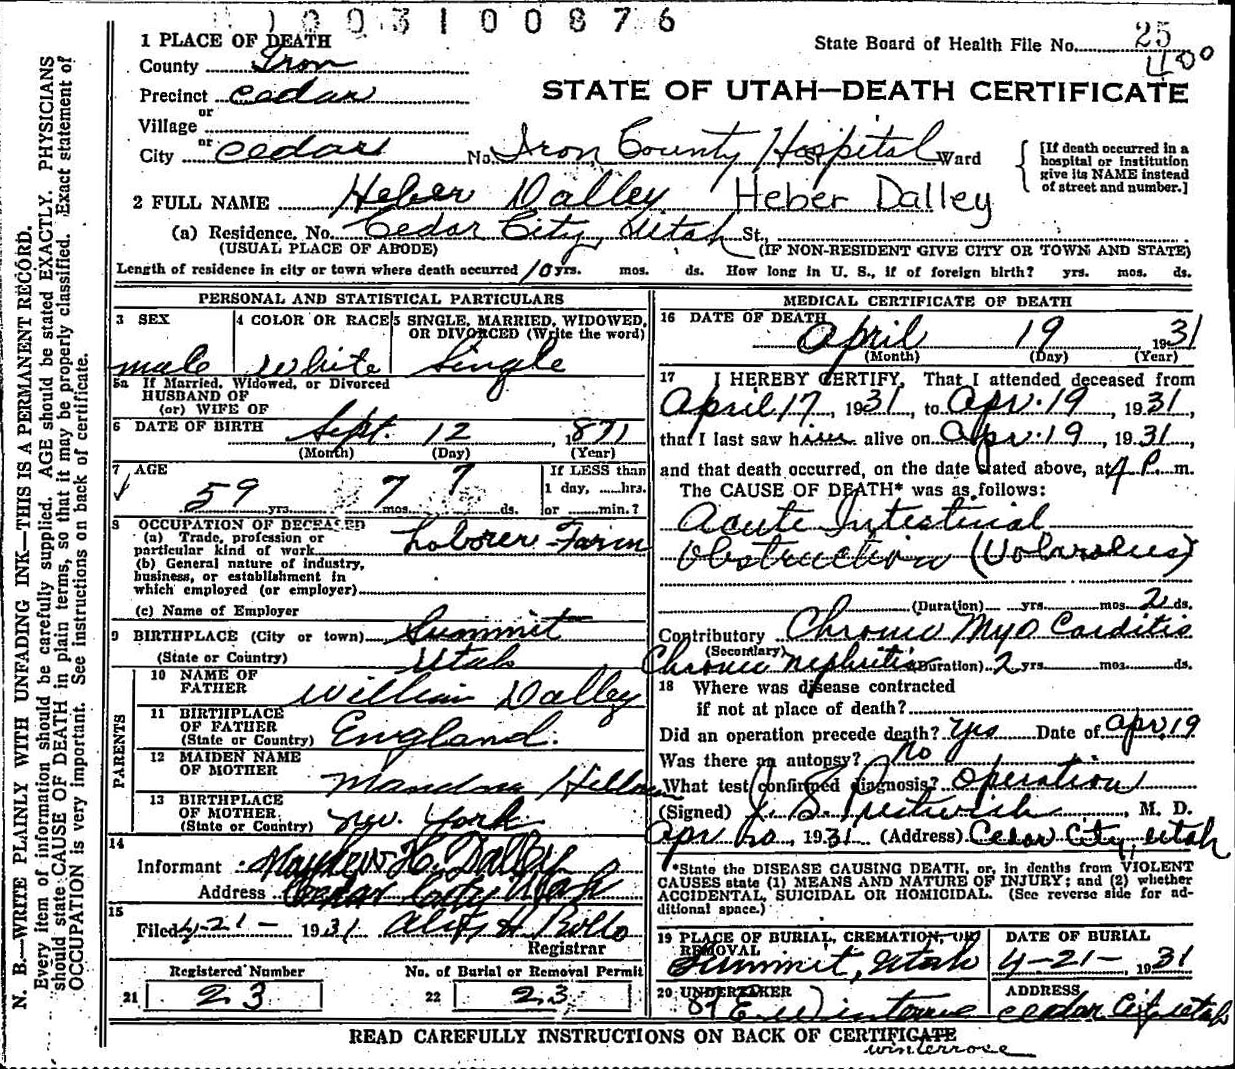 1003100876
1 PLACE OF DEATH
State Board of Health File No. 25
400
County Iron
STATE OF UTAH—DEATH CERTIFICATE
Precinct Cedar
or
Village
or
City Cedar No. Iron County Hospital St. Ward
[If death occurred in a hospital or institution give its NAME instead of street and number.]
2 FULL NAME Heber Dalley Heber Dalley
(a) Residence. No. Cedar City, Utah St.,
(USUAL PLACE OF ABODE) (IF NON-RESIDENT GIVE CITY OR TOWN AND STATE)
Length of residence in city or town where death occurred 10 yrs. mos. ds. How long in U. S., if of foreign birth? yrs. mos. ds.
PERSONAL AND STATISTICAL PARTICULARS
3 SEX 4 COLOR OR RACE 5 SINGLE, MARRIED, WIDOWED, OR DIVORCED (Write the word)
male White Single
5a If Married, Widowed, or Divorced
HUSBAND OF
(or) WIFE OF
6 DATE OF BIRTH Sept. 12, 1871
(Month) (Day) (Year)
7 AGE If LESS than
59 yrs. 7 mos. 7 ds. 1 day, ......hrs.
or ......min.?
8 OCCUPATION OF DECEASED
(a) Trade, profession or
particular kind of work Laborer Farm
(b) General nature of industry,
business, or establishment in
which employed (or employer)
(c) Name of Employer
9 BIRTHPLACE (City or town) Summit
(State or Country) Utah
PARENTS
10 NAME OF
FATHER William Dalley
11 BIRTHPLACE
OF FATHER
(State or Country) England.
12 MAIDEN NAME
OF MOTHER
13 BIRTHPLACE
OF MOTHER
(State or Country) New York
14
Informant Mayhew H. Dalley
Address Cedar City Utah
15
Filed 4-21- 1931
Registrar
Registered Number No. of Burial or Removal Permit
21 23 22 23
MEDICAL CERTIFICATE OF DEATH
16 DATE OF DEATH
April 19 1931
(Month) (Day) (Year)
17 I HEREBY CERTIFY, That I attended deceased from
April 17, 1931, to Apr. 19, 1931,
that I last saw him alive on Apr. 19, 1931,
and that death occurred, on the date stated above, at P. m.
The CAUSE OF DEATH* was as follows:
Acute Intestinal
Obstruction (Volvulus)
(Duration) yrs. mos. 2 ds.
Contributory Chronic Myo Carditis
(Secondary)
Chronic nephritis (Duration) 2 yrs. mos. ds.
18 Where was disease contracted
if not at place of death?
Did an operation precede death? Yes Date of Apr. 19
Was there an autopsy? No
What test confirmed diagnosis? Operation
(Signed) M. D.
Apr 20, 1931 (Address) Cedar City, Utah
*State the DISEASE CAUSING DEATH, or, in deaths from VIOLENT
CAUSES state (1) MEANS AND NATURE OF INJURY; and (2) whether
ACCIDENTAL, SUICIDAL OR HOMICIDAL. (See reverse side for ad-
ditional space.)
19 PLACE OF BURIAL, CREMATION, OR REMOVAL DATE OF BURIAL
Summit, Utah 4-21- 1931
20 UNDERTAKER ADDRESS
Cedar City Utah
READ CAREFULLY INSTRUCTIONS ON BACK OF CERTIFICATE
winterrose
N. B.—WRITE PLAINLY WITH UNFADING INK—THIS IS A PERMANENT RECORD.
Every item of information should be carefully supplied. AGE should be stated EXACTLY. PHYSICIANS
should state CAUSE OF DEATH in plain terms, so that it may be properly classified. Exact statement of
OCCUPATION is very important. See instructions on back of certificate.